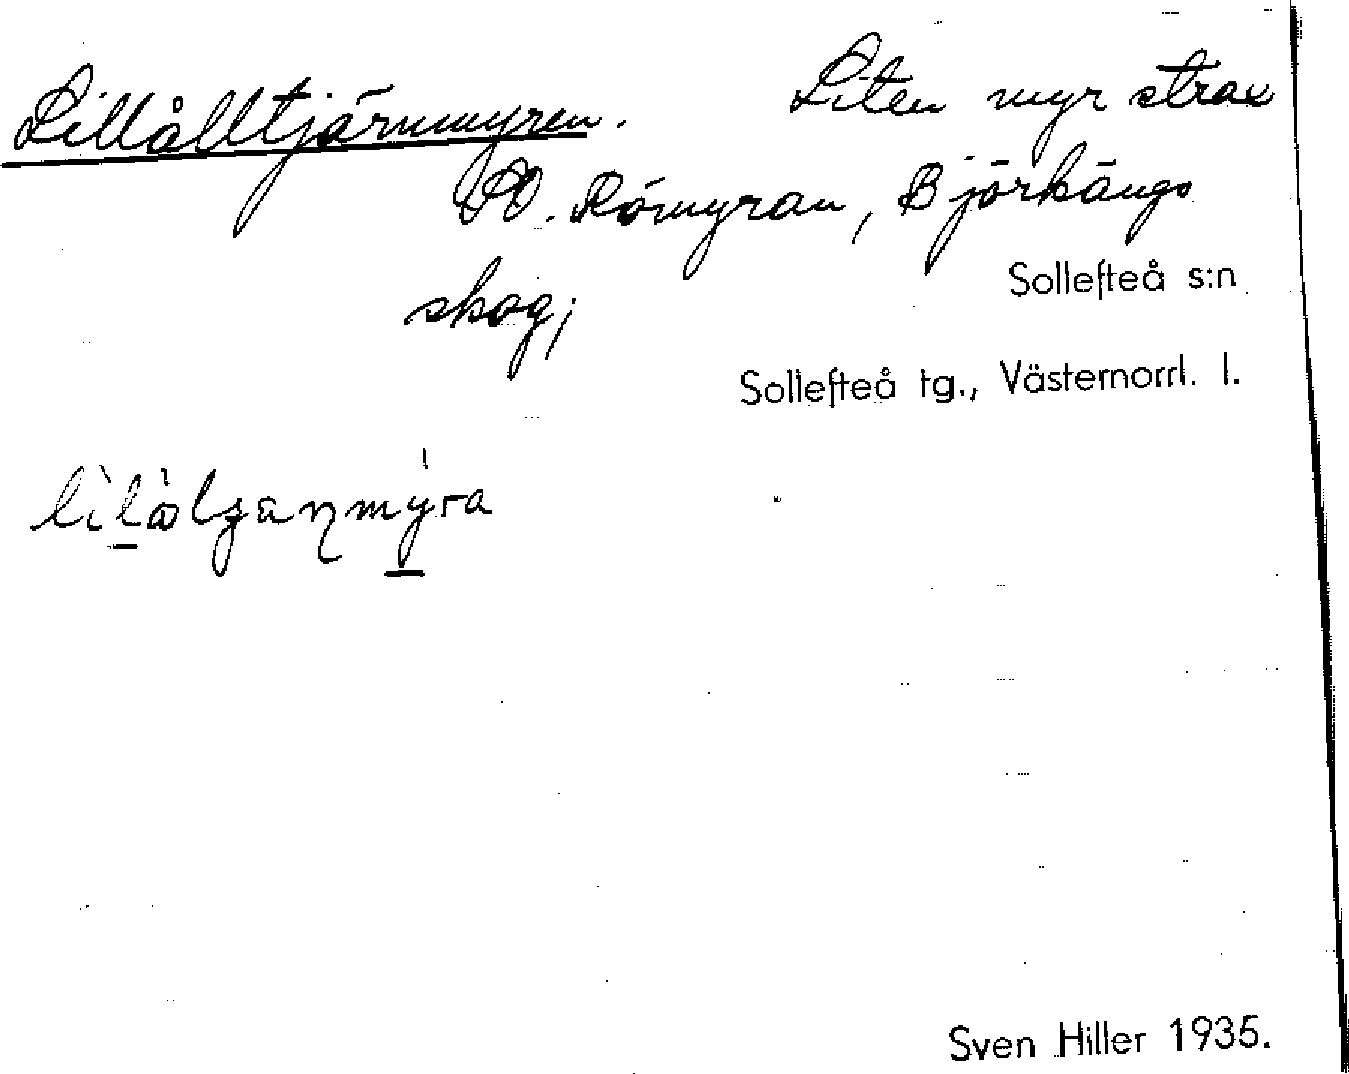 Lillålltjärnmyren. Liten myr strax
. Römyran, Björkängs
skog;
Sollefteå s:n
Sollefteå tg., Västernorrl. l.
Sven Hiller 1935.